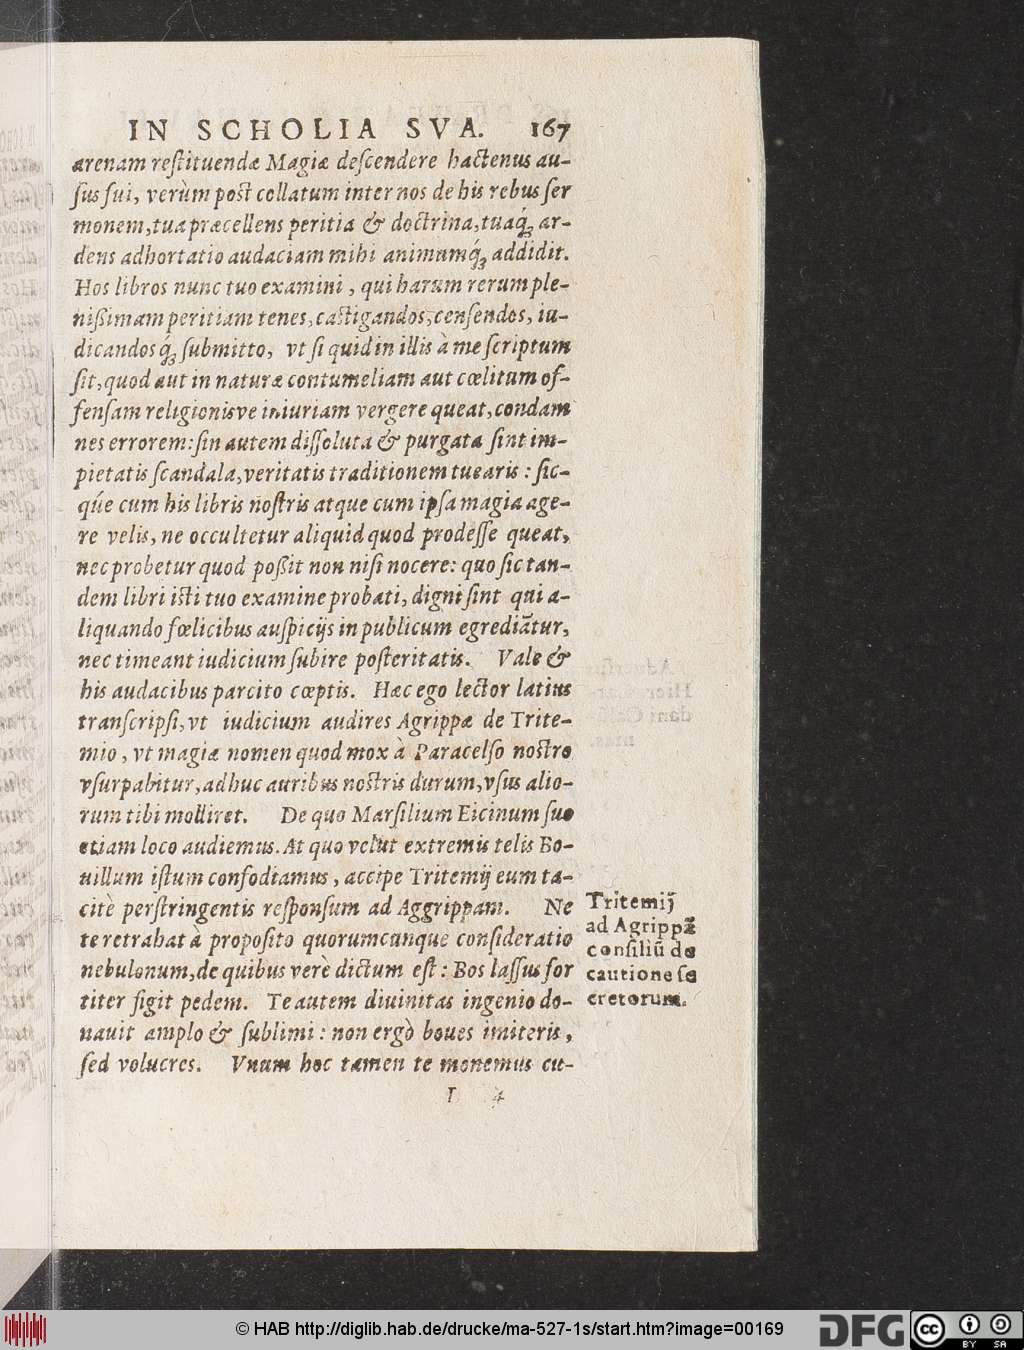 IN SCHOLIA SVA. 167
arenam reſtituendæ Magiæ deſcendere hactenus au-
ſus fui, verùm post collatum inter nos de his rebus ſer
monem, tua præcellens peritia & doctrina, tuaq́ꝫ ar-
dens adhortatio audaciam mihi animumq́ꝫ addidit.
Hos libros nunc tuo examini, qui harum rerum ple-
nißimam peritiam tenes, castigandos, cenſendos, iu-
dicandosq́ꝫ ſubmitto, vt ſi quid in illis à me ſcriptum
ſit, quod aut in naturæ contumeliam aut cœlitum of-
fenſam religionisve iniuriam vergere queat, condam
nes errorem: ſin autem diſſoluta & purgata ſint im-
pietatis ſcandala, veritatis traditionem tuearis: ſic-
qúe cum his libris noſtris atque cum ipſa magia age-
re velis, ne occultetur aliquid quod prodeſſe queat,
nec probetur quod poßit non niſi nocere: quo ſic tan-
dem libri isti tuo examine probati, digni ſint qui a-
liquando fœlicibus auſpicijs in publicum egrediãtur,
nec timeant iudicium ſubire poſteritatis. Vale &
his audacibus parcito cœptis. Hæc ego lector latius
tranſcripſi, vt iudicium audires Agrippæ de Trite-
mio, vt magiæ nomen quod mox à Paracelſo noſtro
vſurpabitur, adhuc auribus noſtris durum, vſus alio-
rum tibi molliret. De quo Marſilium Eicinum ſuo
etiam loco audiemus. At quo velut extremis telis Bo-
uillum iſtum confodiamus, accipe Tritemij eum ta-
citè perſtringentis reſponſum ad Aggrippam. Ne
te retrahat à propoſito quorumcunque conſideratio
nebulonum, de quibus verè dictum eſt: Bos laſſus for
titer figit pedem. Te autem diuinitas ingenio do-
nauit amplo & ſublimi: non ergò boues imiteris,
ſed volucres. Vnum hoc tamen te monemus cu-
Tritemij
ad Agrippã
conſiliũ de
cautione ſe
cretorum.
L 4
© HAB http://diglib.hab.de/drucke/ma-527-1s/start.htm?image=00169
DFG
cc
BY SA